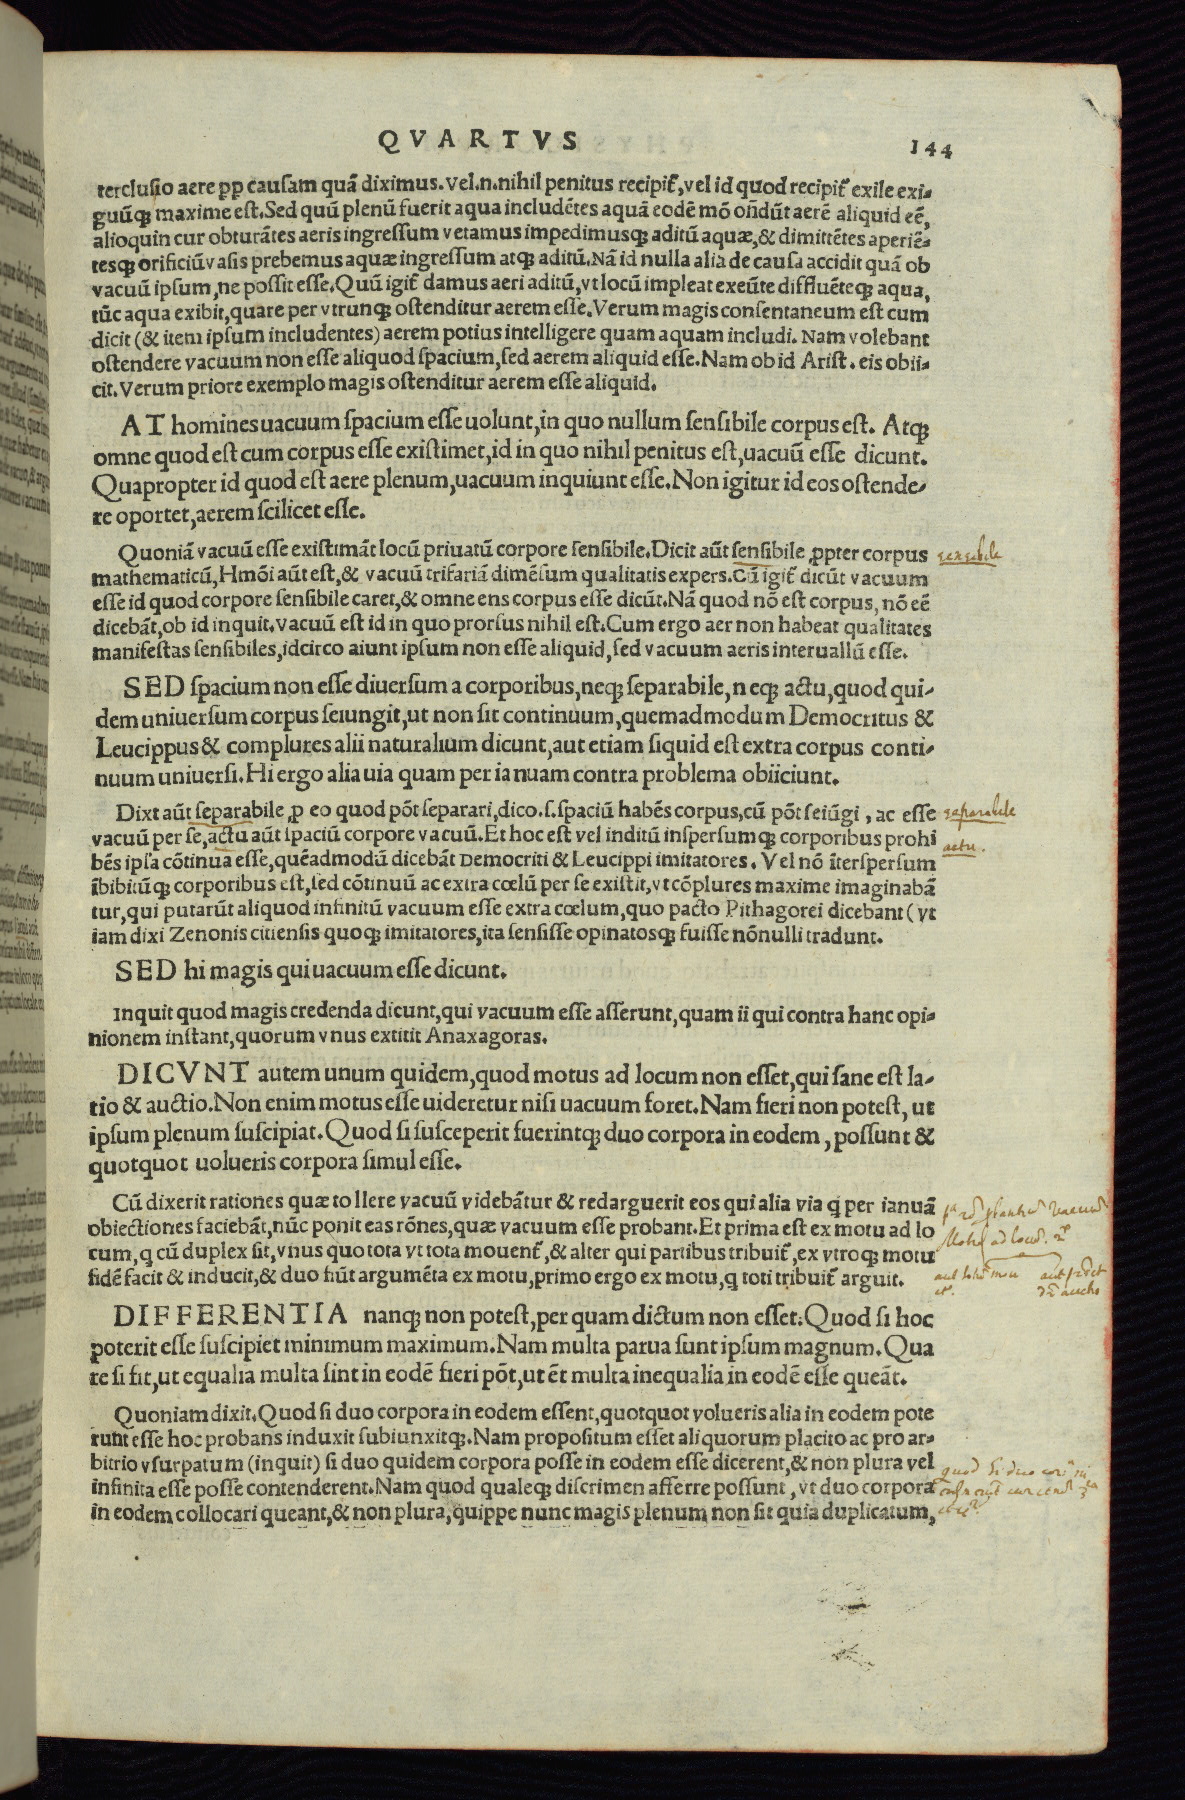 QVARTVS 144
terclusio aere ꝓp causam quā diximus. Vel.n.nihil penitus recipit̄, vel id quod recipit̄ exile exi-
guūqꝫ maxime est. Sed quū plenū fuerit aqua includētes aquā eodē mō on̄dūt aerē aliquid eē,
alioquin cur obturātes aeris ingressum vetamus impedimusqꝫ aditū aquæ, & dimittētes aperiē-
tesqꝫ orificiū vasis prebemus aquæ ingressum atqꝫ aditū. Nā id nulla alia de causa accidit quā ob
vacuū ipsum, ne possit esse. Quū igit̄ damus aeri aditū, vt locū impleat exeūte diffluēteqꝫ aqua,
tūc aqua exibit, quare per vtrunqꝫ ostenditur aerem esse. Verum magis consentaneum est cum
dicit (& item ipsum includentes) aerem potius intelligere quam aquam includi. Nam volebant
ostendere vacuum non esse aliquod spacium, sed aerem aliquid esse. Nam ob id Arist. eis obii-
cit. Verum priore exemplo magis ostenditur aerem esse aliquid.
AT homines uacuum spacium esse uolunt, in quo nullum sensibile corpus est. Atqꝫ
omne quod est cum corpus esse existimet, id in quo nihil penitus est, uacuū esse dicunt.
Quapropter id quod est aere plenum, uacuum inquiunt esse. Non igitur id eos ostende-
re oportet, aerem scilicet esse.
Quoniā vacuū esse existimāt locū priuatū corpore sensibile. Dicit aūt sensibile ꝓpter corpus
sensibile
mathematicū, Hmōi aūt est, & vacuū trifariā dimēsum qualitatis expers. Cū igit̄ dicūt vacuum
esse id quod corpore sensibile caret, & omne ens corpus esse dicūt. Nā quod nō est corpus, nō eē
dicebāt, ob id inquit. vacuū est id in quo prorsus nihil est. Cum ergo aer non habeat qualitates
manifestas sensibiles, idcirco aiunt ipsum non esse aliquid, sed vacuum aeris interuallū esse.
SED spacium non esse diuersum a corporibus, neqꝫ separabile, neqꝫ actu, quod qui-
dem uniuersum corpus seiungit, ut non sit continuum, quemadmodum Democritus &
Leucippus & complures alii naturalium dicunt, aut etiam siquid est extra corpus conti-
nuum uniuersi. Hi ergo alia uia quam per ianuam contra problema obiiciunt.
Dixt aūt separabile ꝓ eo quod pōt separari, dico.s.spaciū habēs corpus, cū pōt seiūgi, ac esse
separabile
vacuū per se, actu aūt spaciū corpore vacuū. Et hoc est vel inditū inspersumqꝫ corporibus prohi
actu.
bēs ipsa cōtinua esse, quēadmodū dicebāt Democriti & Leucippi imitatores. Vel nō īterspersum
ībibitūqꝫ corporibus est, sed cōtinuū ac extra cœlū per se existit, vt cōplures maxime imaginabā
tur, qui putarūt aliquod infinitū vacuum esse extra cœlum, quo pacto Pithagorei dicebant (vt
iam dixi Zenonis citiensis quoqꝫ imitatores, ita sensisse opinatosqꝫ fuisse nōnulli tradunt.
SED hi magis qui uacuum esse dicunt.
Inquit quod magis credenda dicunt, qui vacuum esse asserunt, quam ii qui contra hanc opi-
nionem instant, quorum vnus extitit Anaxagoras.
DICVNT autem unum quidem, quod motus ad locum non esset, qui sane est la-
tio & auctio. Non enim motus esse uideretur nisi uacuum foret. Nam fieri non potest, ut
ipsum plenum suscipiat. Quod si susceperit fuerintqꝫ duo corpora in eodem, possunt &
quotquot uolueris corpora simul esse.
Cū dixerit rationes quæ tollere vacuū videbātur & redarguerit eos qui alia via q̄ per ianuā
obiectiones faciebāt, nūc ponit eas rōnes, quæ vacuum esse probant. Et prima est ex motu ad lo
cum, q̄ cū duplex sit, vnus quo tota vt tota mouent̄, & alter qui partibus tribuit̄, ex vtroqꝫ motu
fidē facit & inducit, & duo fiūt argumēta ex motu, primo ergo ex motu, q̄ toti tribuit̄ arguit.
DIFFERENTIA nanqꝫ non potest, per quam dictum non esset. Quod si hoc
poterit esse suscipiet minimum maximum. Nam multa parua sunt ipsum magnum. Qua
re si fit, ut equalia multa sint in eodē fieri pōt, ut ēt multa inequalia in eodē esse queāt.
Quoniam dixit. Quod si duo corpora in eodem essent, quotquot volueris alia in eodem pote
runt esse hoc probans induxit subiunxitqꝫ. Nam propositum esset aliquorum placito ac pro ar-
bitrio vsurpatum (inquit) si duo quidem corpora posse in eodem esse dicerent, & non plura vel
quod si duo
infinita esse posse contenderent. Nam quod qualeqꝫ discrimen afferre possunt, vt duo corpora
in eodem collocari queant, & non plura, quippe nunc magis plenum non sit quia duplicatum,